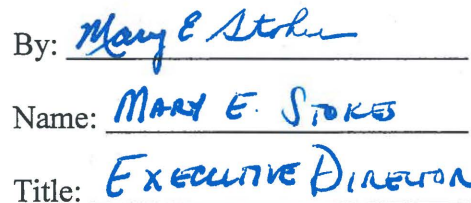 By: Mary E Stokes
Name: MARY E. STOKES
Title: EXECUTIVE DIRECTOR